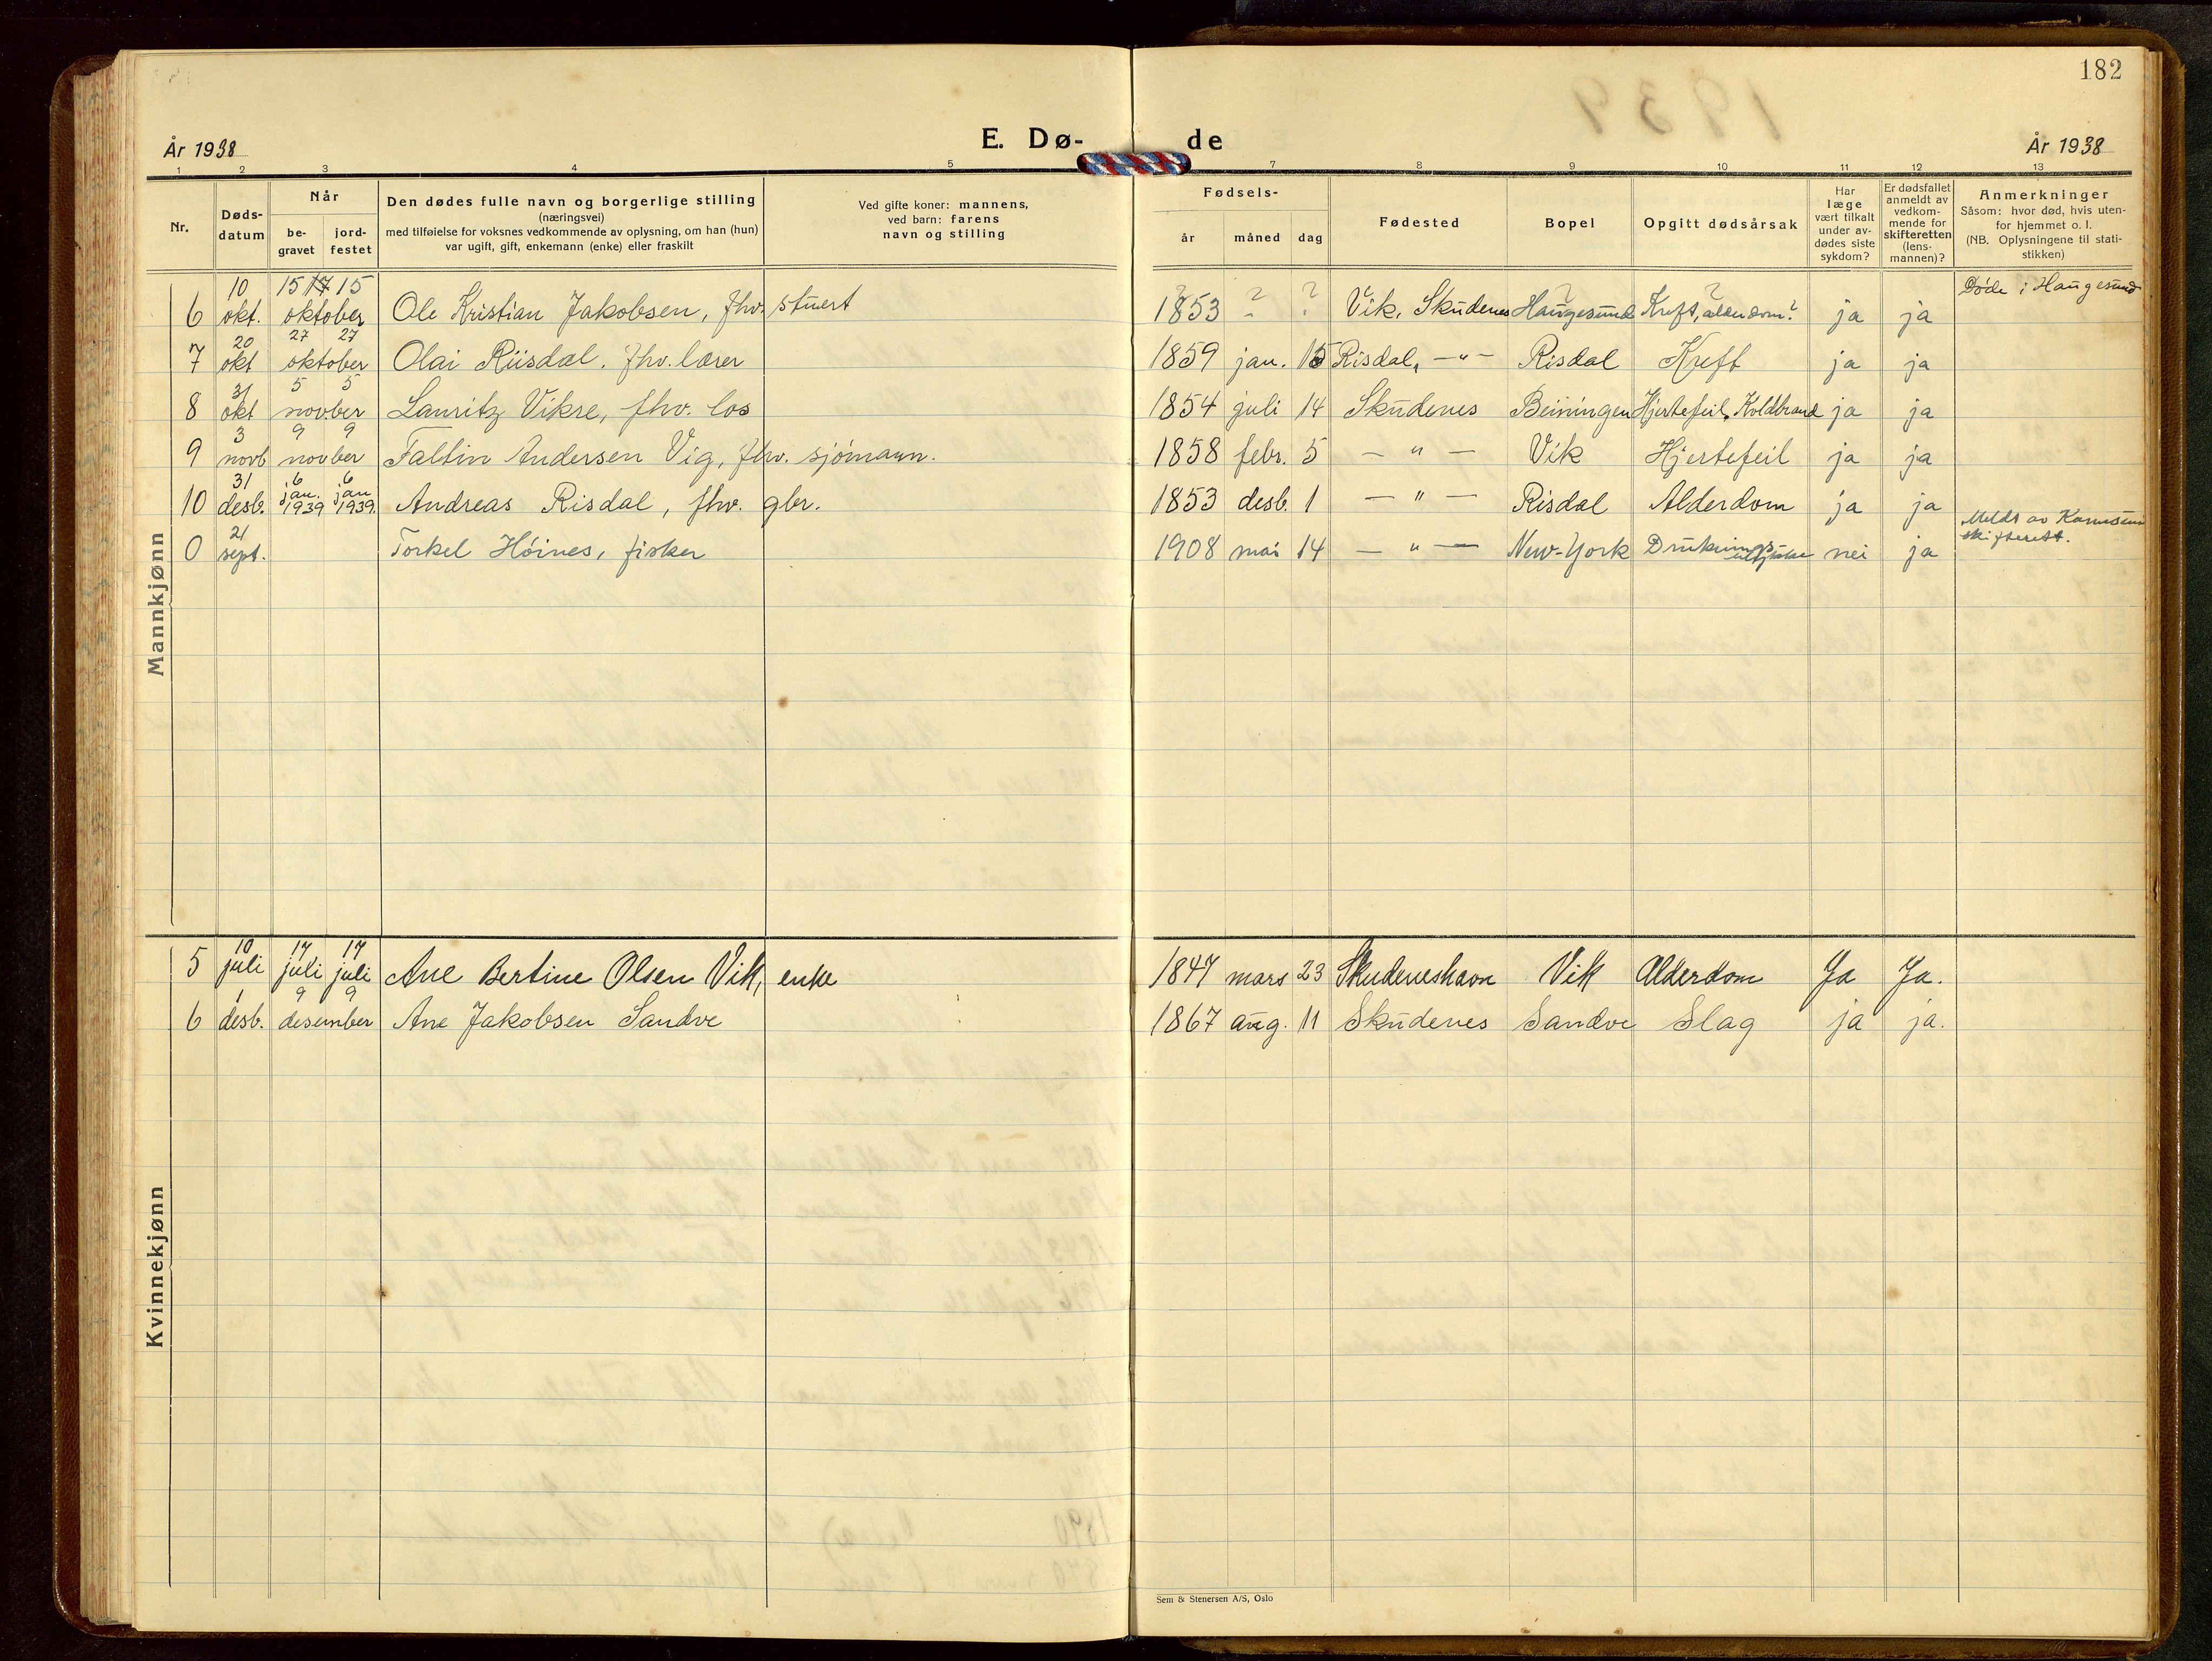 182
År 1938 E. Dø- de År 1938
1 2 3 4 5 7 8 9 10 11 12 13
Nr.
Døds-
datum
Når
be-
gravet
jord-
festet
Den dødes fulle navn og borgerlige stilling
(næringsvei)
med tilføielse for voksnes vedkommende av oplysning, om han (hun)
var ugift, gift, enkemann (enke) eller fraskilt
Ved gifte koner: mannens,
ved barn: farens
navn og stilling
Fødsels-
år måned dag
Fødested
Bopel
Opgitt dødsårsak
Har
læge
vært tilkalt
under av-
dødes siste
sykdom?
Er dødsfallet
anmeldt av
vedkom-
mende for
skifteretten
(lens-
mannen)?
Anmerkninger
Såsom: hvor død, hvis uten-
for hjemmet o. l.
(NB. Oplysningene til stati-
stikken)
Mannkjønn
10 15 17 15 ? ? ? ? ? ? Døde i Haugesund
6 okt. oktober Ole Kristian Jakobsen, fhv. stuert 1853 - . Vik, Skudenes Haugesund Kreft, alderdom? ja ja
20 27 27
7 okt oktober Olai Riisdal. fhv. lærer 1859 jan. 15 Risdal, —"— Risdal Kreft ja ja
31 5 5
8 okt novber Lauritz Vikre, fhv. los 1854 juli 14 Skudenes Beiningen Hjertefeil, Koldbrand ja ja
3 9 9
9 novb novber Faltin Andersen Vig, fhv. sjømann. 1858 febr. 5 — " — Vik Hjertefeil ja ja
31 6 6
10 desb. jan. 1939 jan 1939. Andreas Risdal, fhv. gbr. 1853 desb. 1 — " — Risdal Alderdom ja ja
21 Meldt av Karmsund
0 sept. Torkel Høines, fisker 1908 mai 14 — " — New-York Druknings- nei ja skifterett.
Kvinnekjønn
10 17 17
5 juli juli juli Ane Bertine Olsen Vik, enke 1847 mars 23 Skudeneshavn Vik Alderdom Ja Ja.
1 9 9
6 desb. desember Ane Jakobsen Sandve 1867 aug. 11 Skudenes Sandve Slag ja ja.
Sem & Stenersen A/S, Oslo